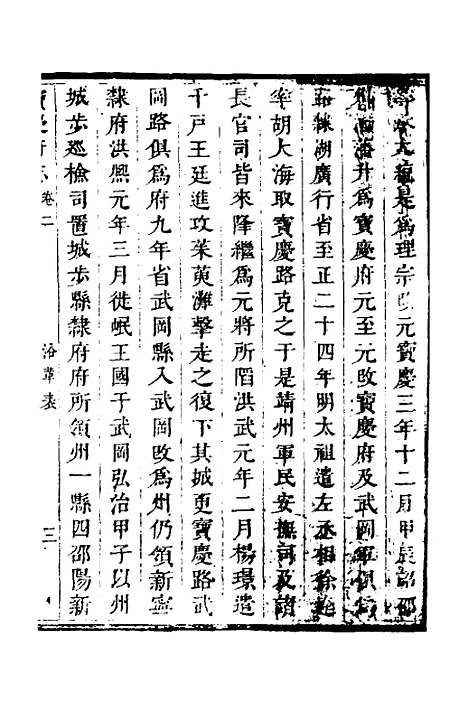 大統是爲理宗改元寶慶三年十二月甲辰詔邵
州升爲寶慶府元至元改寶慶府及武岡軍俱爲
路隸湖廣行省至正二十四年明太祖遣左丞相徐達
率胡大海取寶慶路克之于是靖州軍民安撫司及諸
長官司皆來降繼爲元將所陷洪武元年二月楊璟遣
千戸王廷進攻茱萸灘擊走之復下其城更寶慶路武
岡路俱爲府九年省武岡縣入武岡改爲州仍領新寧
隸府洪熙元年三月徙岷王國于武岡弘治甲子以州
城步巡檢司置城步縣隸府府所領州一縣四邵陽新
卷二
沿革表
三